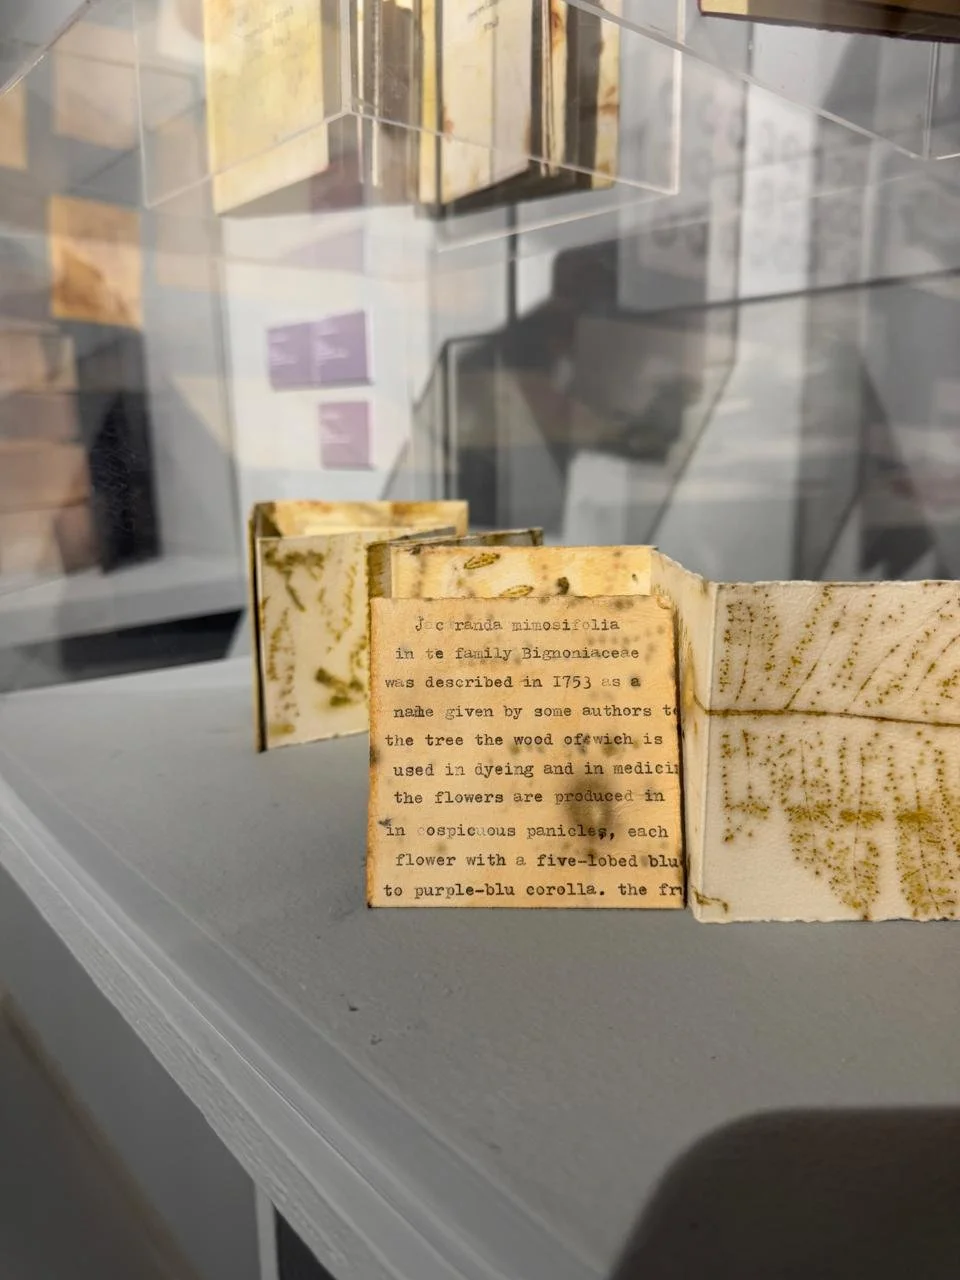 Jac randa mimosifolia
in te family Bignoniaceae
was described in I753 as a
name given by some authors to
the tree the wood of wich is
used in dyeing and in medici
the flowers are produced in
in cospicuous panicles, each
flower with a five-lobed blu
to purple-blu corolla. the fru